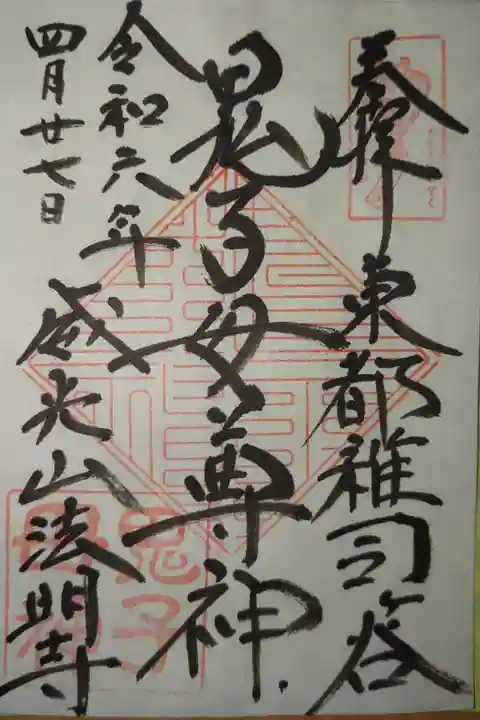 奉拝 東都雑司谷
鬼子母尊神
令和六年 威光山法明寺
四月廿七日
鬼子
母神